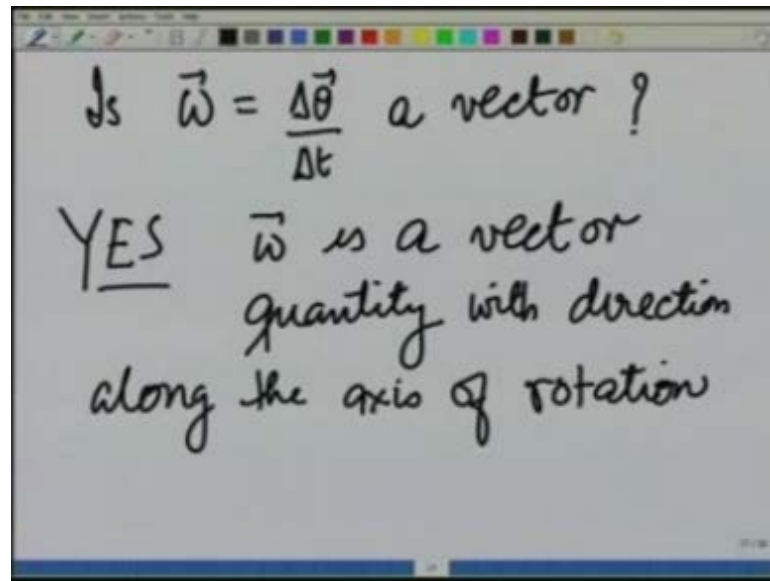 Is ω⃗ = Δθ⃗/Δt a vector ?
YES ω⃗ is a vector
quantity with direction
along the axis of rotation